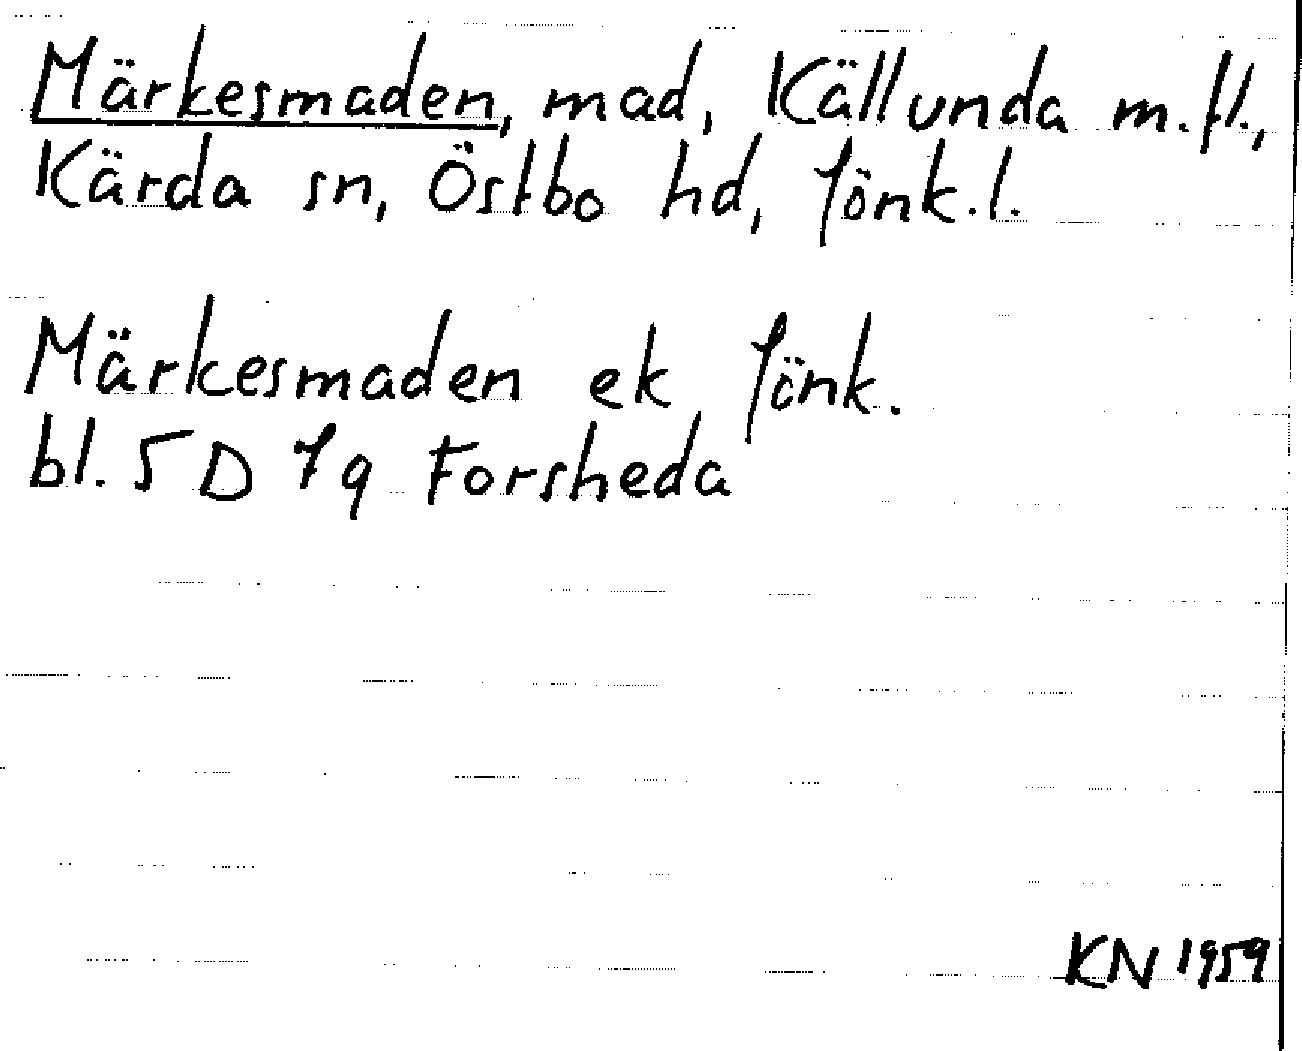 Märkesmaden, mad, Källunda m.fl.,
Kärda sn, Östbo hd, Jönk.l.
Märkesmaden ek Jönk.
bl. 5 D 7q Forsheda
KN 1959